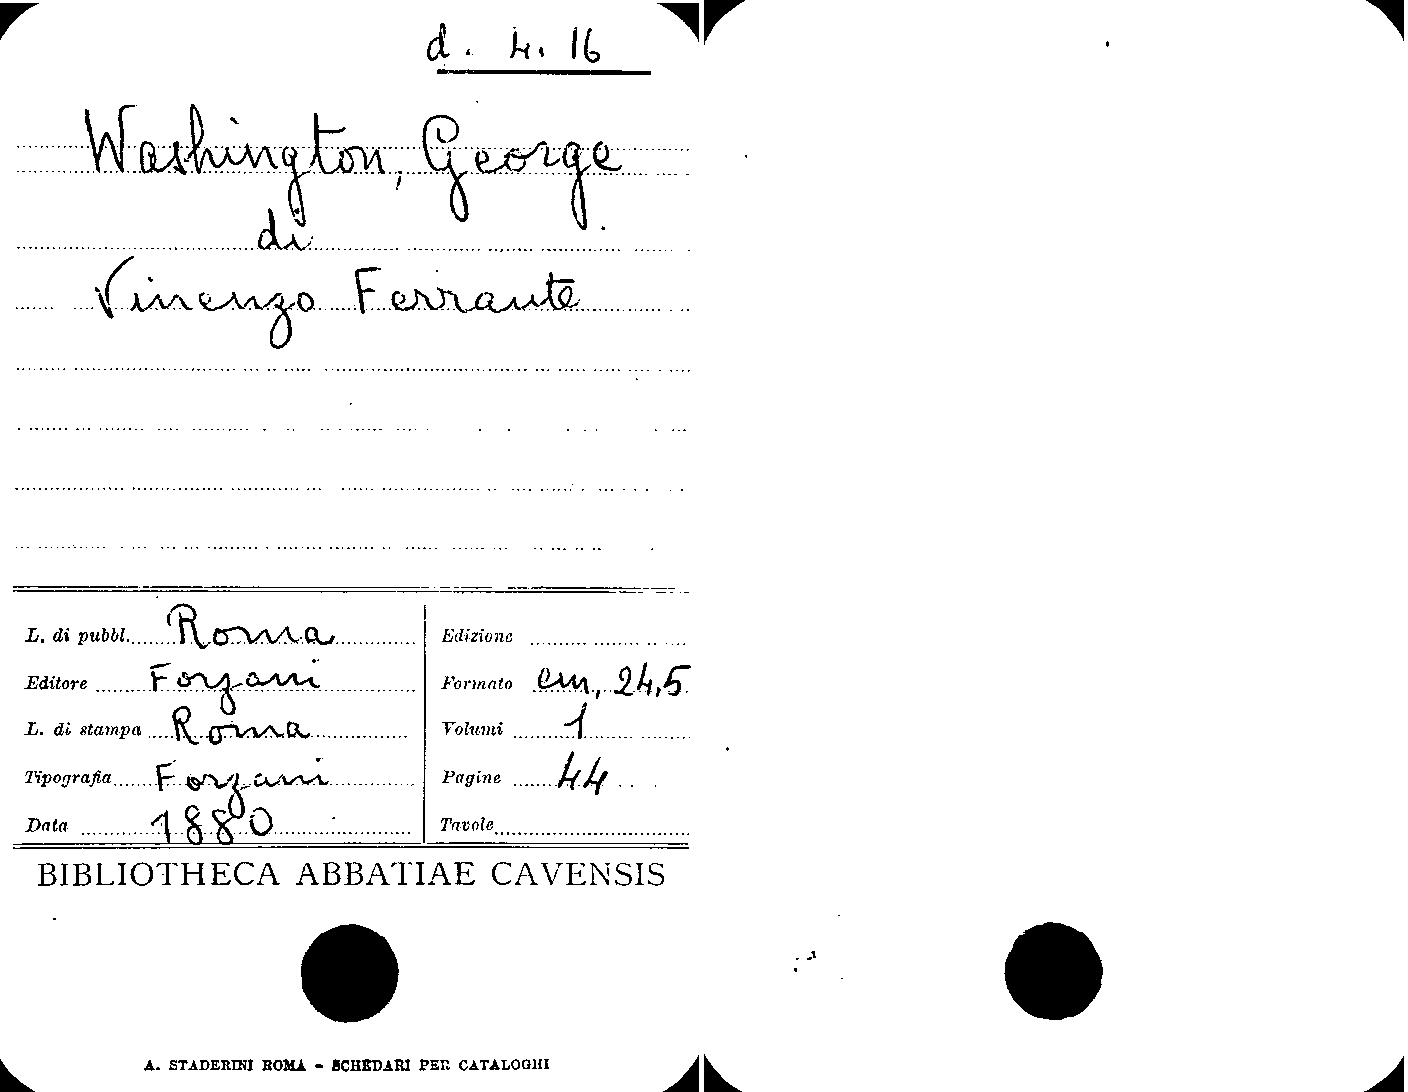 d. 4. 16
Washington, George
di
Vincenzo Ferrante
L. di pubbl. Roma
Editore Forzani
L. di stampa Roma
Tipografia Forzani
Data 1880
Edizione
Formato cm, 24,5
Volumi 1
Pagine 44
Tavole
BIBLIOTHECA ABBATIAE CAVENSIS
A. STADERINI ROMA - SCHEDARI PER CATALOGHI